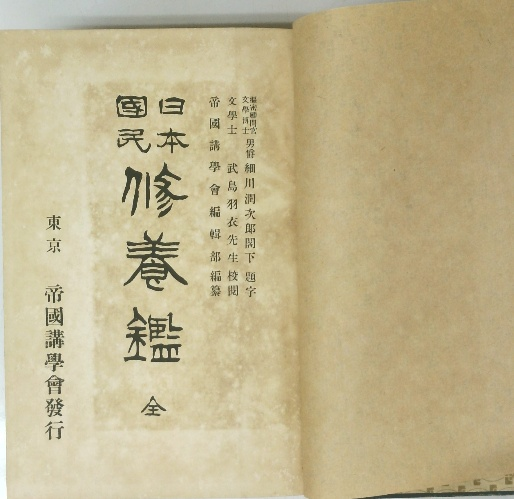 樞密顧問官
文學博士 男爵 細川潤次郎閣下 題字
文學士 武島羽衣先生校閲
帝國講學會編輯部編纂
日本
國民
修養鑑 全
東京 帝國講學會發行